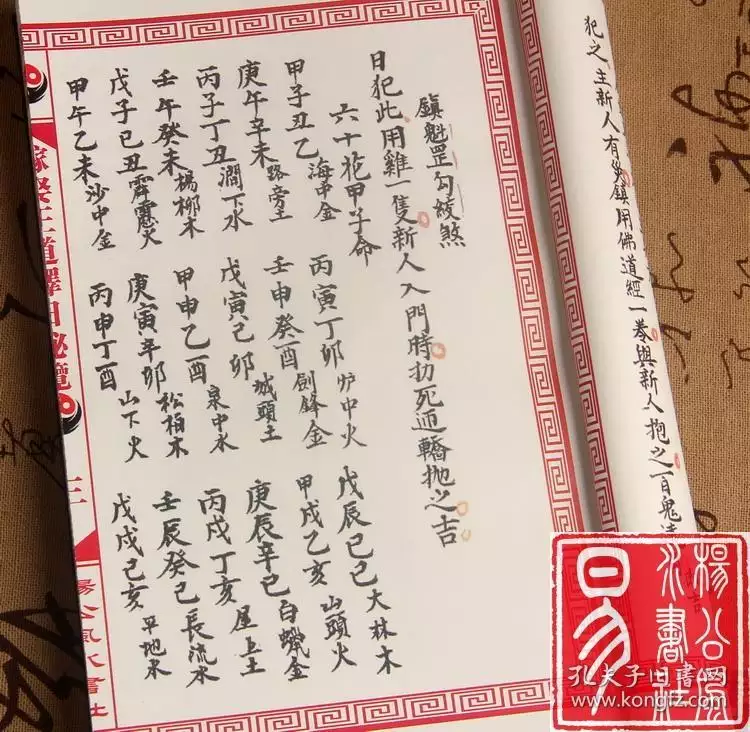 犯之主新人有災鎮用佛道經一卷與新人抱之百鬼
吉
鎮魁罡勾絞煞
日犯此用雞一隻新人入門時扐死迊轎抛之吉
六十花甲子命
甲子丑乙海中金 丙寅丁卯炉中火 戊辰巳己大林木
庚午辛未路旁土 壬申癸酉劍鋒金 甲戌乙亥山頭火
丙子丁丑澗下水 戊寅己卯城頭土 庚辰辛巳白蠟金
壬午癸未楊柳木 甲申乙酉泉中水 丙戌丁亥屋上土
戊子己丑霹靂火 庚寅辛卯松柏木 壬辰癸巳長流水
甲午乙未沙中金 丙申丁酉山下火 戊戌己亥平地水
嫁娶王道擇日秘覽
三
楊公風水書社
楊公風
水書社
易
孔夫子旧書网
www.kongfz.com